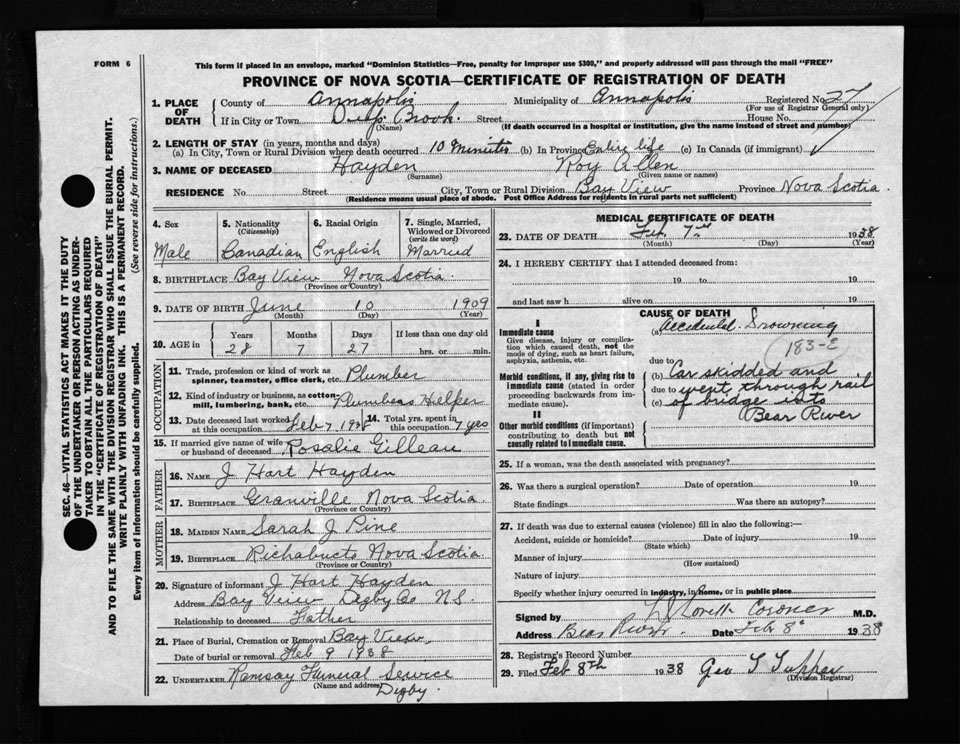 FORM 6
This form if placed in an envelope, marked "Dominion Statistics—Free, penalty for improper use $300," and properly addressed will pass through the mail "FREE"
PROVINCE OF NOVA SCOTIA—CERTIFICATE OF REGISTRATION OF DEATH
1. PLACE OF DEATH
County of Annapolis Municipality of Annapolis Registered No. 27
(For use of Registrar General only)
If in City or Town Deep Brook Street House No.
(Name) (If death occurred in a hospital or institution, give the name instead of street and number)
2. LENGTH OF STAY (in years, months and days)
(a) In City, Town or Rural Division where death occurred 10 Minutes (b) In Province Entire life (c) In Canada (if immigrant)
3. NAME OF DECEASED Hayden Roy Allen
(Surname) (Given name or names)
RESIDENCE No. Street City, Town or Rural Division Bay View Province Nova Scotia
(Residence means usual place of abode. Post Office Address for residents in rural parts not sufficient)
4. Sex Male
5. Nationality (Citizenship) Canadian
6. Racial Origin English
7. Single, Married, Widowed or Divorced (write the word) Married
8. BIRTHPLACE Bay View Nova Scotia
(Province or Country)
9. DATE OF BIRTH June 10 1909
(Month) (Day) (Year)
10. AGE in Years Months Days If less than one day old
28 7 27 hrs. or min.
OCCUPATION
11. Trade, profession or kind of work as spinner, teamster, office clerk, etc. Plumber
12. Kind of industry or business, as cotton-mill, lumbering, bank, etc. Plumbers Helper
13. Date deceased last worked at this occupation Feb 7, 1938
14. Total yrs. spent in this occupation 7 yes
15. If married give name of wife or husband of deceased Rosalie Gilleau
FATHER
16. NAME J Hart Hayden
17. BIRTHPLACE Granville Nova Scotia
(Province or Country)
MOTHER
18. MAIDEN NAME Sarah J Rine
19. BIRTHPLACE Richabucto Nova Scotia
(Province or Country)
20. Signature of informant J Hart Hayden
Address Bay View Digby Co N.S.
Relationship to deceased Father
21. Place of Burial, Cremation or Removal Bay View
Date of burial or removal Feb 9 1938
22. UNDERTAKER Ramsay Funeral Service
(Name and address) Digby.
MEDICAL CERTIFICATE OF DEATH
23. DATE OF DEATH Feb 7th 1938
(Month) (Day) (Year)
24. I HEREBY CERTIFY that I attended deceased from:
19 to 19
and last saw h alive on 19
CAUSE OF DEATH
I
Immediate cause
Give disease, injury or complication which caused death, not the mode of dying, such as heart failure, asphyxia, asthenia, etc.
(a) Accidental Drowning
183-E
due to
Morbid conditions, if any, giving rise to immediate cause (stated in order proceeding backwards from immediate cause).
(b) Car skidded and
due to went through rail
(c) of bridge into
Bear River
II
Other morbid conditions (if important) contributing to death but not causally related to immediate cause.
25. If a woman, was the death associated with pregnancy?
26. Was there a surgical operation? Date of operation 19
State findings Was there an autopsy?
27. If death was due to external causes (violence) fill in also the following:—
Accident, suicide or homicide? Date of injury 19
(State which)
Manner of injury
(How sustained)
Nature of injury
Specify whether injury occurred in industry, in home, or in public place
Signed by Lovett Coroner M.D.
Address Bear River Date Feb 8th 1938
28. Registrar's Record Number
29. Filed Feb 8th 1938 Geo T Tupper
(Division Registrar)
SEC. 46—VITAL STATISTICS ACT MAKES IT THE DUTY
OF THE UNDERTAKER OR PERSON ACTING AS UNDER-
TAKER TO OBTAIN ALL THE PARTICULARS REQUIRED
IN THE "CERTIFICATE OF REGISTRATION OF DEATH"
AND TO FILE THE SAME WITH THE DIVISION REGISTRAR WHO SHALL ISSUE THE BURIAL PERMIT.
WRITE PLAINLY WITH UNFADING INK. THIS IS A PERMANENT RECORD.
Every item of information should be carefully supplied. (See reverse side for instructions.)